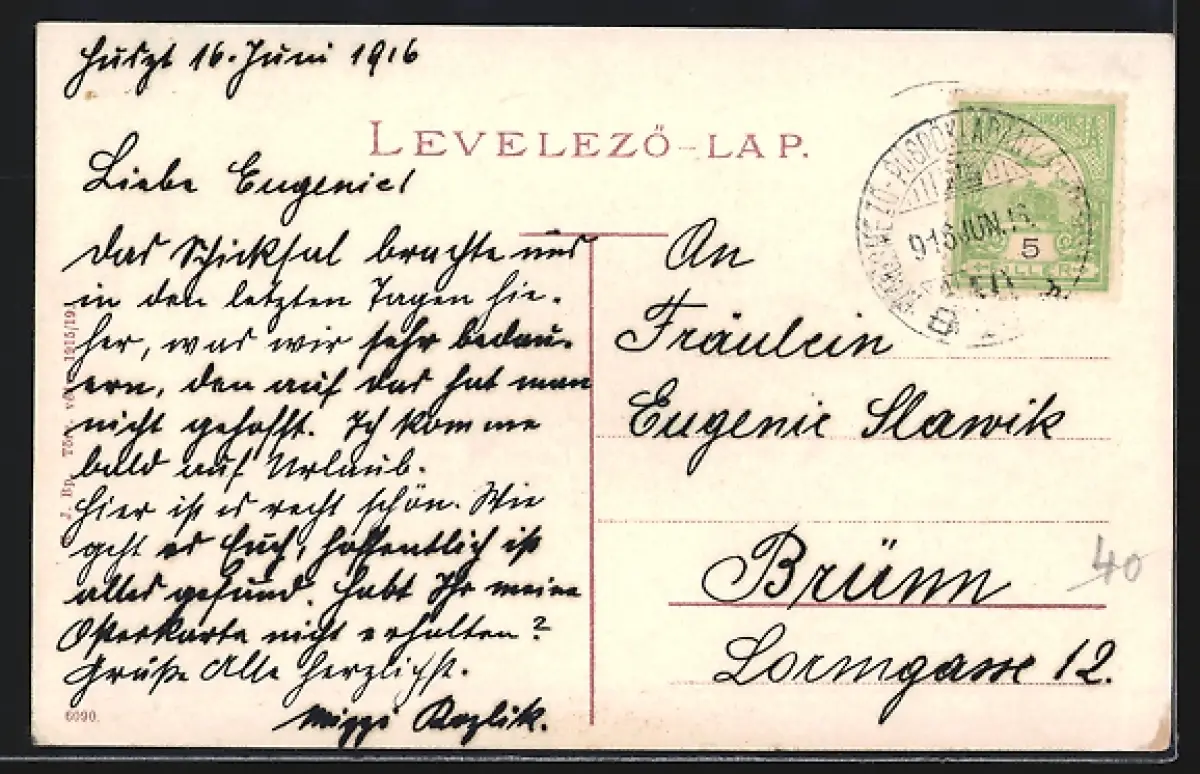 Huszt 16. Juni 1916
LEVELEZŐ-LAP.
Liebe Eugenie!
Das Schicksal brachte uns
in den letzten Tagen hie-
her, was wir sehr bedau-
ern, den auf das hat man
nicht gehofft. Ich komme
bald auf Urlaub.
Hier ist es recht schön. Wie
geht es Euch, hoffentlich ist
alles gesund. Habt Ihr meine
Osterkarte nicht erhalten?
Grüße Alle herzlichst.
Mizzi Kozlik.
6090.
An
Fräulein
Eugenie Slawik
Brünn
Lormgasse 12.
916 JUN. 16
5
FILLER
40